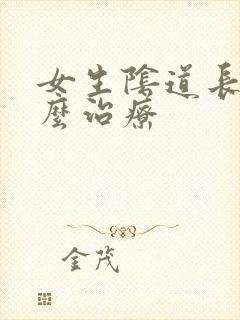 女生陰道長
麼治療
金茂